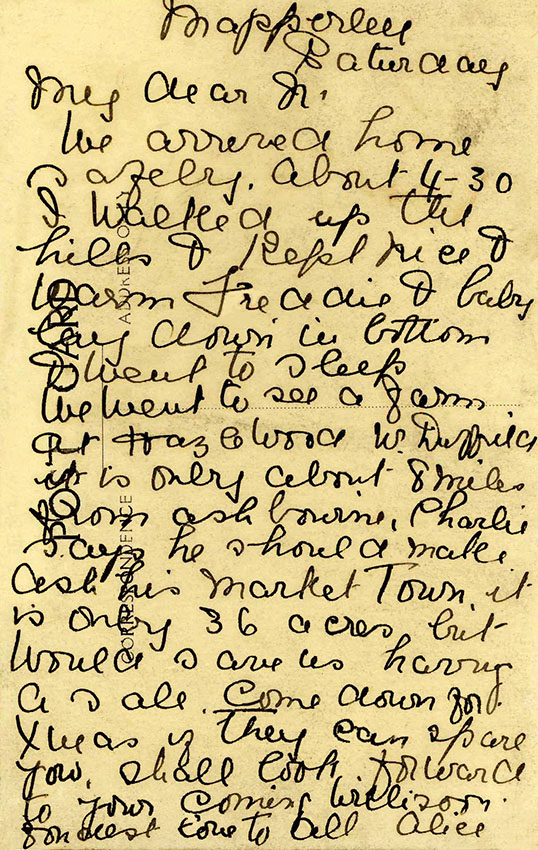 Mapperley
Saturday
My dear Jr.
We arrived home
safely. about 4-30
I walked up the
hills & kept nice &
warm Freddie & baby
lay down in bottom
& went to sleep
We went to see a farm
at Hazelwood W. Duffield
it is only about 8 miles
from ashbourne, Charlie
says he should make
Ash his market Town, it
is only 36 acres but
would save us having
a sale. Come down for
Xmas if they can spare
you, shall look forward
to your coming
fondest love to all Alice
POST CARD
CORRESPONDENCE
ADDRESS ONLY